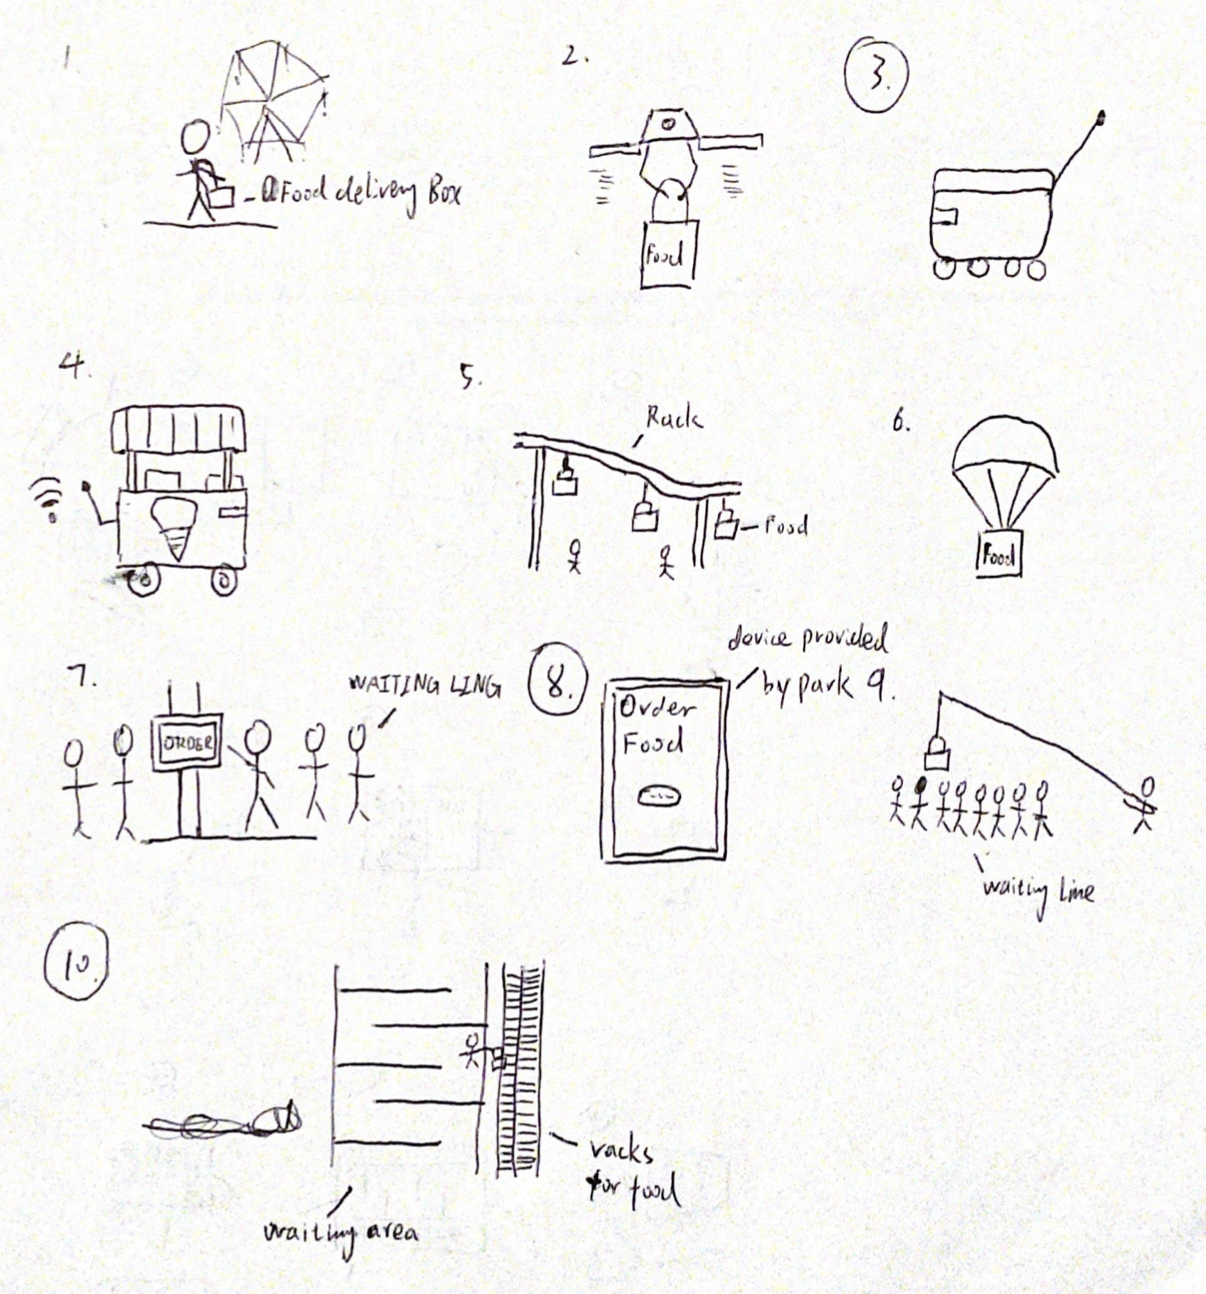 1.
Food delivery Box
2.
Food
3.
4.
5.
Rack
Food
6.
Food
7.
ORDER
WAITING LING
8.
Order
Food
device provided
by park
9.
waiting line
10.
waiting area
racks
for food